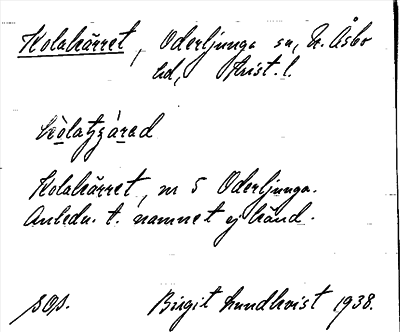 Kolakärret, Oderljunga sn, N. Åsbo
hd, Krist. l.
Kolakärret, nr 5 Oderljunga.
Anledn. t. namnet ej känd.
sgs. Birgit Lundkvist 1938.